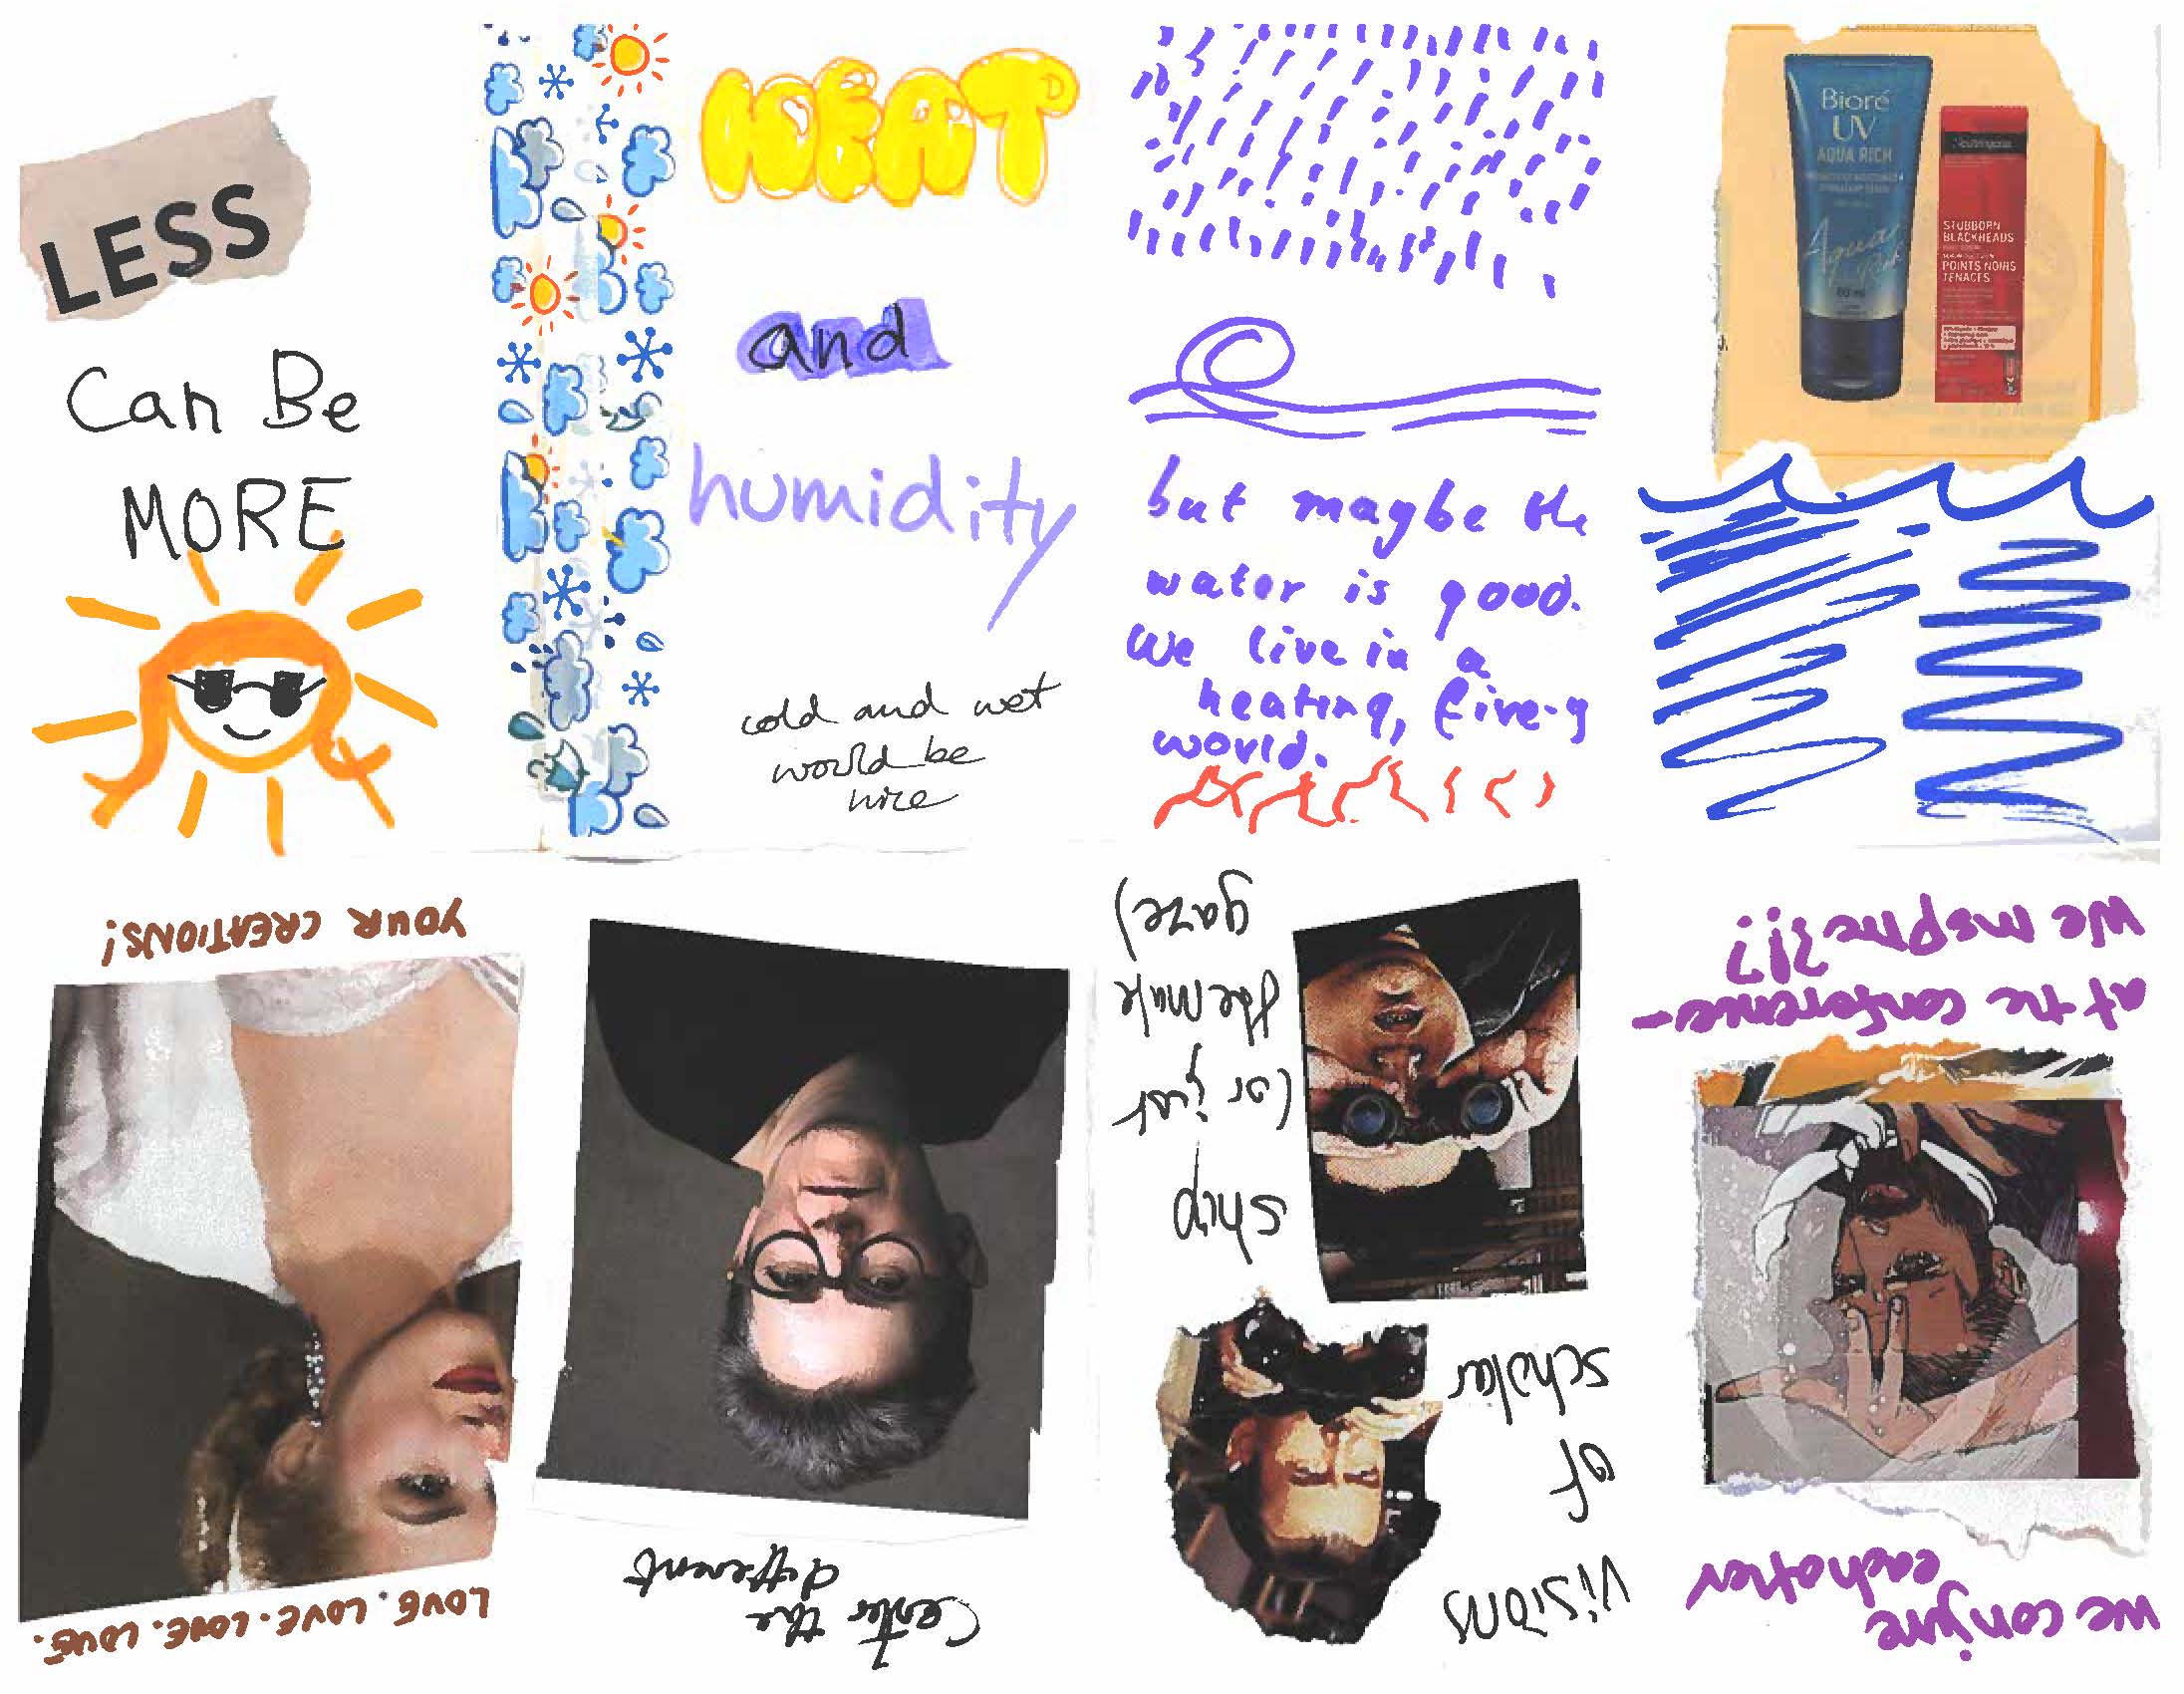 LESS
Can Be
MORE
HEAT
and
humidity
cold and wet
would be
nice
but maybe the
water is good.
We live in a
heating, fire-y
world.
Bioré
UV
AQUA RICH
Aqua
Rich
Neutrogena
STUBBORN
BLACKHEADS
POINTS NOIRS
TENACES
we conjure
eachother
at the conference-
we inspire?!?
visions
of
scholar
ship
(or just
the male
gaze)
Center the
different
LOVE. LOVE. LOVE. LOVE.
YOUR CREATIONS!